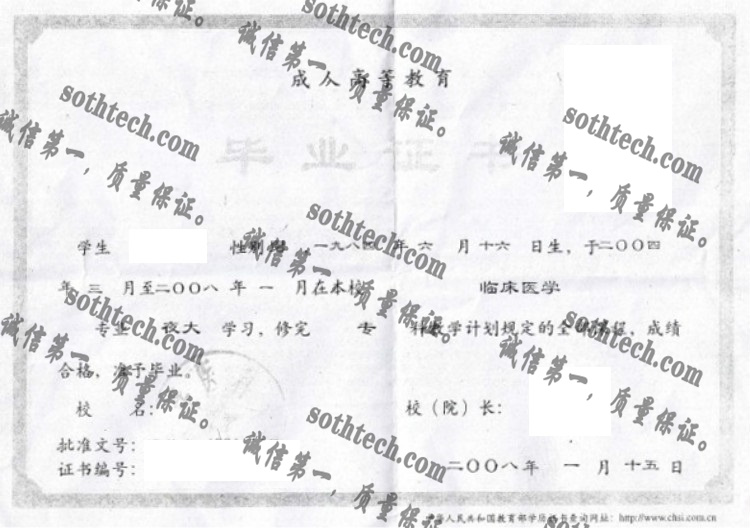 成人高等教育
毕业证书
学生 性别 一九八 年六月十六日生，于二〇〇四
年三月至二〇〇八年一月在本校 临床医学
专业 夜大 学习，修完 专 科教学计划规定的全部课程，成绩
合格，准予毕业。
校 名： 校（院）长：
批准文号：
证书编号： 二〇〇八年一月十五日
中华人民共和国教育部学历证书查询网址：http://www.chsi.com.cn
sothtech.com
诚信第一，质量保证。
sothtech.com
诚信第一，质量保证。
sothtech.com
诚信第一，质量保证。
sothtech.com
诚信第一，质量保证。
sothtech.com
诚信第一，质量保证。
sothtech.com
诚信第一，质量保证。
sothtech.com
诚信第一，质量保证。